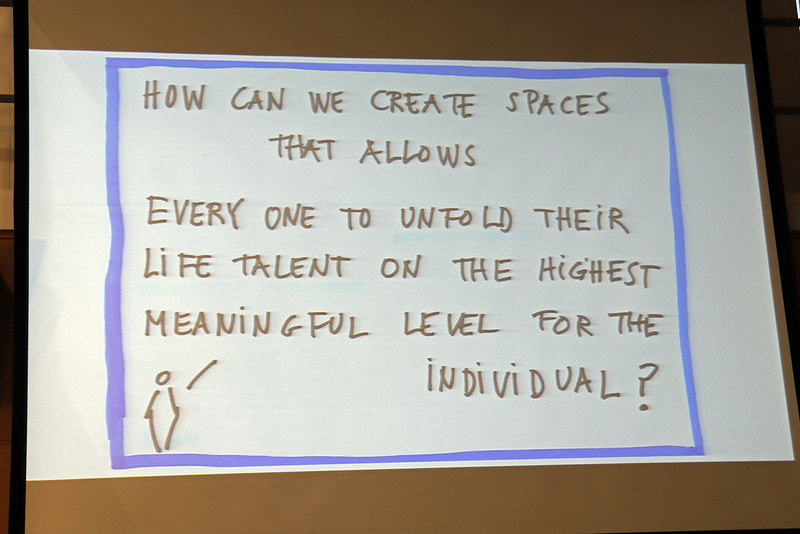 HOW CAN WE CREATE SPACES
THAT ALLOWS
EVERY ONE TO UNFOLD THEIR
LIFE TALENT ON THE HIGHEST
MEANINGFUL LEVEL FOR THE
INDIVIDUAL?